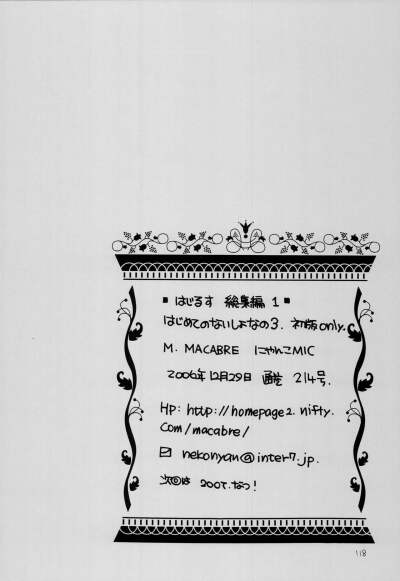 ■ はじるす 総集編 1 ■
はじめてのないしょなの3. 初版only.
M. MACABRE にゃんこMIC
2006年12月29日 通巻 214号.
HP: http://homepage2.nifty.
com/macabre/
nekonyan@inter7.jp.
次回は 2007.なつ!
118